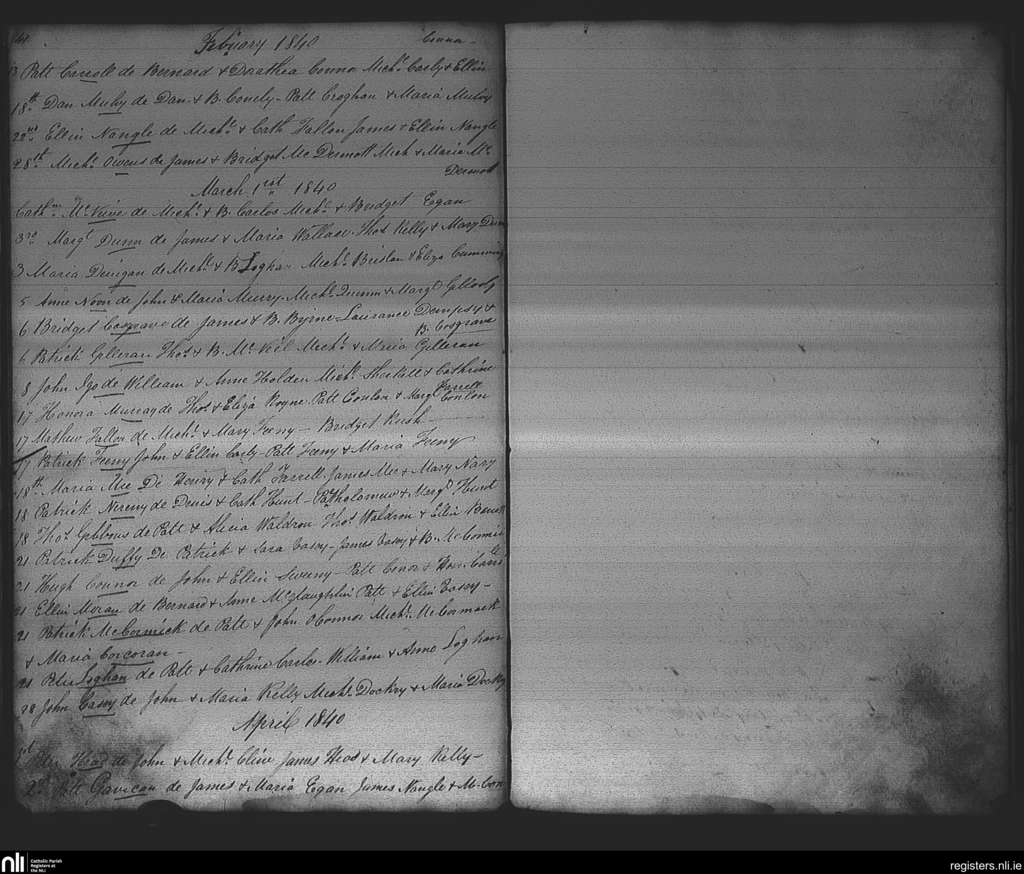 Febuary 1840
Connor
13 Patt Carroll de Bernard & Dorathea Connor Michl. Carly & Ellin
18th Dan Mulry de Dan & B. Conely - Patt Croghan & Maria Mulry
22nd Ellin Nangle de Michl. & Cath Fallon James & Ellin Nangle
28th Michl. Owens de James & Bridget Mc Dermott Mich & Maria Mc
Dermott
March 1rst 1840
Mc de Michl. & B. Carlos Michl. & Bridget Egan
3rd Margt Dunn de James & Maria Wallace Thos Kelly & Mary Dunn
3 Maria Denigan de Michl. & B Loghan Michl. Brislan & Eliza Cumming
5 Anne Noon de John & Maria Murry Michl. & Margt Gillooly
6 Bridget Cosgrave de James & B. Byrne - Laurance Dempsy &
B. Cosgrave
6 Patrick Gilleran Thos & B. Michl. & Maria Gilleran
8 John Igo de William & Anne Holden Michl. & Cathrine
Farrell
17 Honora Murray de Thos & Eliza Royne Patt Conlon & Margt Conlon
17 Mathew Fallon de Michl. & Mary Feeny - Bridget Rush -
17 Patrick Feeny John & Ellin Carly - Patt Feeny & Maria Feeny
18th Maria Mee De Henry & Cath Farrell James Mee & Mary Nary
18 Patrick de Denis & Cath Hunt - Batholomew & Margt Hunt
18 Thos Gibbons de Patt & Alicia Waldron Thos Waldron & Ellin
21 Patrick Duffy De Patrick & Sara Casey - James Casey & B. McCormic
21 Hugh Connor de John & Ellin Sweeny - Patt Conor &
21 Ellin Moran de Bernard & Anne McGlaughlin Patt & Ellin Casey -
21 Patrick McCormick de Patt & John OConnor Michl. McCormack
& Maria Corcoran -
21 Peter Loghan de Patt & Cathrine Carlos - William & Anne Loghan
28 John Casey de John & Maria Kelly Michl. Dockry & Maria Dockry
April 1840
1st Head de John & Michl. Cline James Head & Mary Kelly -
2d Patt Gavican de James & Maria Egan James Nangle & M. Con
nli
Catholic Parish
Registers at
the NLI
registers.nli.ie